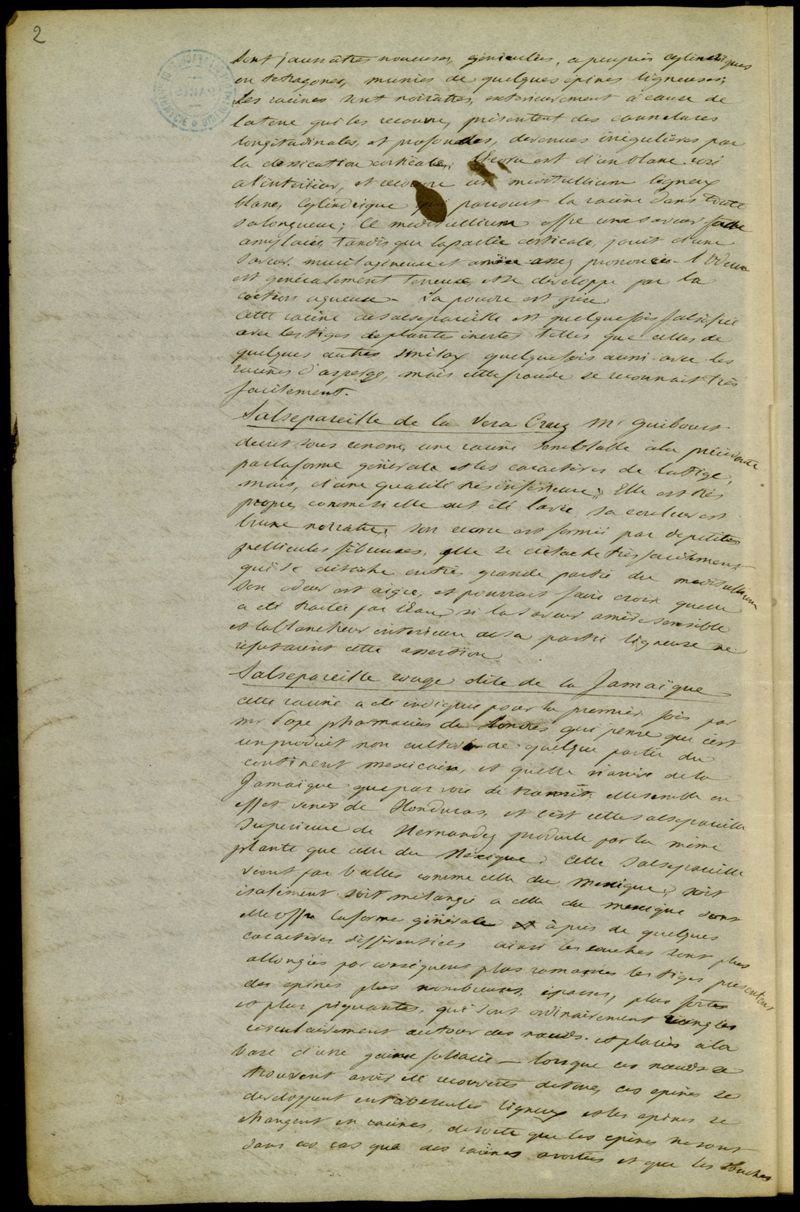 2
sont jaunâtres noueuses, géniculées, a peu près cylindriques
ou tetragones, munies de quelques épines ligneuses;
Les racines sont noirâtres, exterieurement à cause de
la terre qui les recouvre, présentent des cannelures
longitudinales, et profondes, devenues irrégulières par
la dessication corticale; l'écorce est d'un blanc rosé
a l'intérieur, et recouvre un meditullium ligneux
blanc, cylindrique qui parcourt la racine dans toute
sa longueur; Ce meditullium offre une saveur fade
amylacée, tandis que la partie corticale, jouit d'une
saveur mucilagineuse et amère assez prononcée. l'Odeur
est généralement terreuse, et se developpe par la
coction aqueuse - Sa poudre est grise.
Cette racine de salsepareille est quelquefois falsifiée
avec les tiges de plantes inertes telles que celles de
quelques autres smilax quelquefois aussi avec les
racines d'asperge, mais cette fraude se reconnait très
facilement.
Salsepareille de la Vera Cruz Mr Guibourt
decrit sous ce nom, une racine semblable à la précédente
par la forme générale et les caractères de la tige,
mais, d'une qualité très inférieure; Elle est très
propre, comme si elle eut été lavée, sa couleur est
brune noirâtre, son ecorce est formée par de petites
pellicules fibreuses, elle se détache très facilement
qui se détache en très grande partie du meditullium
Son odeur est aigre, et pourrait faire croire quelle
a été traitée par l'eau, si la saveur amère sensible
et la blancheur intérieure de sa partie ligneuse ne
refutaient cette assertion
Salsepareille rouge dite de la Jamaïque
cette racine a été indiquée pour la premiere fois par
mr Pope pharmacien de Londres qui pense que c'est
un produit non cultivé de quelque partie du
continent mexicain, et quelle n'arrive de la
Jamaïque que par voie de transit. elle semble en
effet venir de Honduras, et c'est cette salsepareille
supérieure de Hernandez produite par la même
plante que celle du Mexique. Cette salsepareille
vient par balles comme celle du Mexique, soit
isolement soit mélangée a celle du mexique dont
elle offre la forme générale à près de quelques
caractères différentiels ainsi les souches sont plus
allongées par conséquent plus ramassées les tiges présentent
des épines plus nombreuses, épaisses, plus fortes
et plus piquantes, qui sont ordinairement rangées
circulairement autour des noeuds. et placées à la
base d'une gaine foliacée - lorsque ces noeuds se
trouvent avoir été recouverts de terre, ces épines se
developpent en tubercules ligneux et les épines se
changent en racines, de sorte que les épines ne sont
dans ces cas que des racines avortées et que les souches